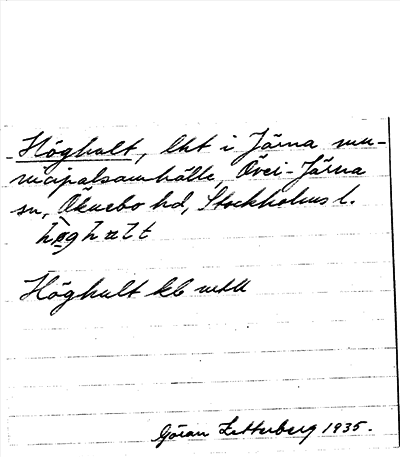 Höghult, lht i Järna mu-
nicipalsamhälle, Över-Järna
sn, Öknebo hd, Stockholms l.
Höghult kb
Göran Zetterberg 1935.